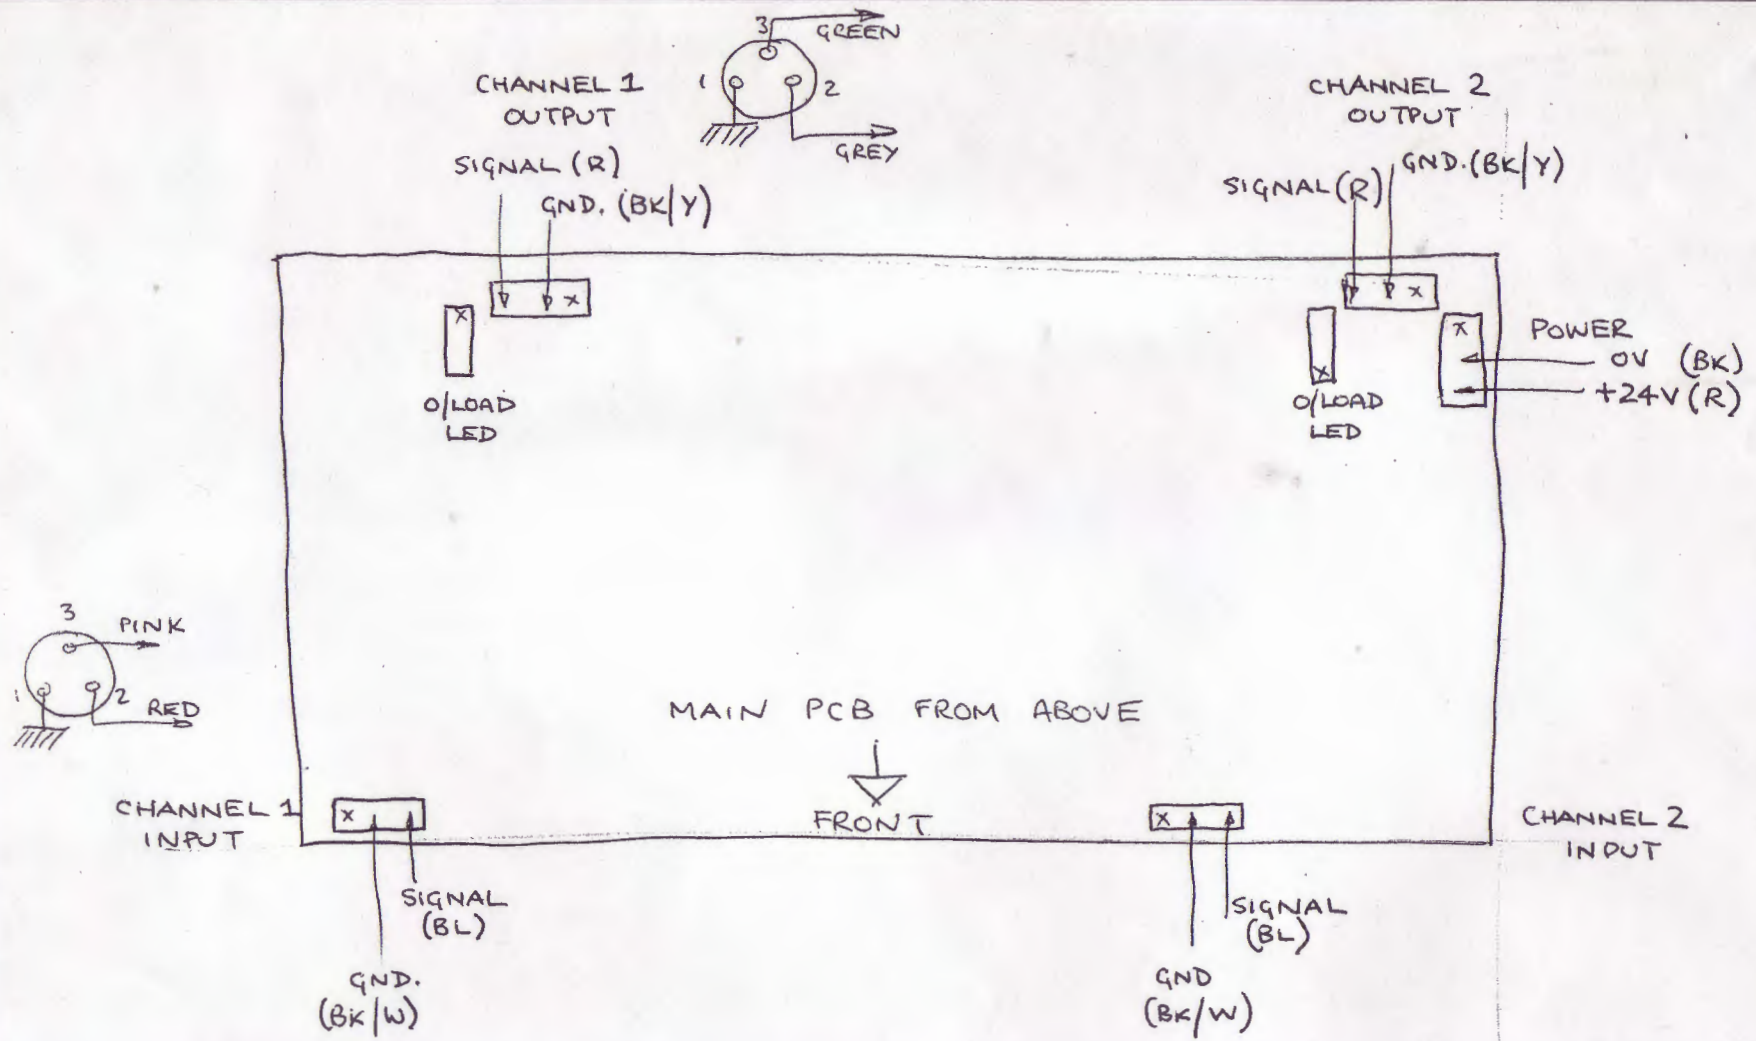 3
GREEN
1
2
GREY
CHANNEL 1
OUTPUT
SIGNAL (R)
GND. (BK/Y)
CHANNEL 2
OUTPUT
SIGNAL (R)
GND. (BK/Y)
X
X
O/LOAD
LED
X
X
O/LOAD
LED
X
POWER
0V (BK)
+24V (R)
3
PINK
1
2
RED
MAIN PCB FROM ABOVE
FRONT
CHANNEL 1
INPUT
X
SIGNAL
(BL)
GND.
(BK/W)
X
CHANNEL 2
INPUT
SIGNAL
(BL)
GND
(BK/W)